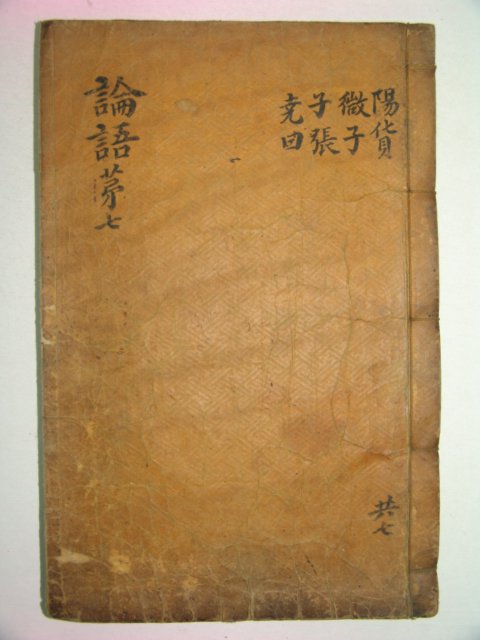 論語苐七
陽貨
微子
子張
尭曰
共七